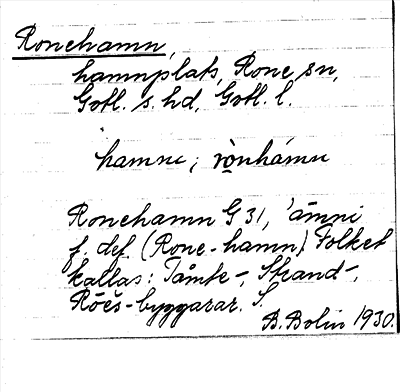 Ronehamn,
hamnplats, Rone sn,
Gotl. s. hd, Gotl. l.
hamni; rònhámn
Ronehamn G 31, 'āmni
f. def. (Rone-hamn) Folket
kallas: Tåmte-, Strand-,
Röčš-byggarar. S.
B. Bolin 1930.